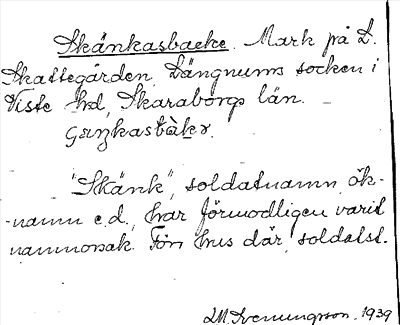 Skänkasbacke. Mark på L.
Skattegården, Längnums socken i
Viste hd, Skaraborgs län.
"Skänk", soldatnamn, ök-
-namn e.d., har förmodligen varit
namnorsak. Förr hus där, soldatst.
1939